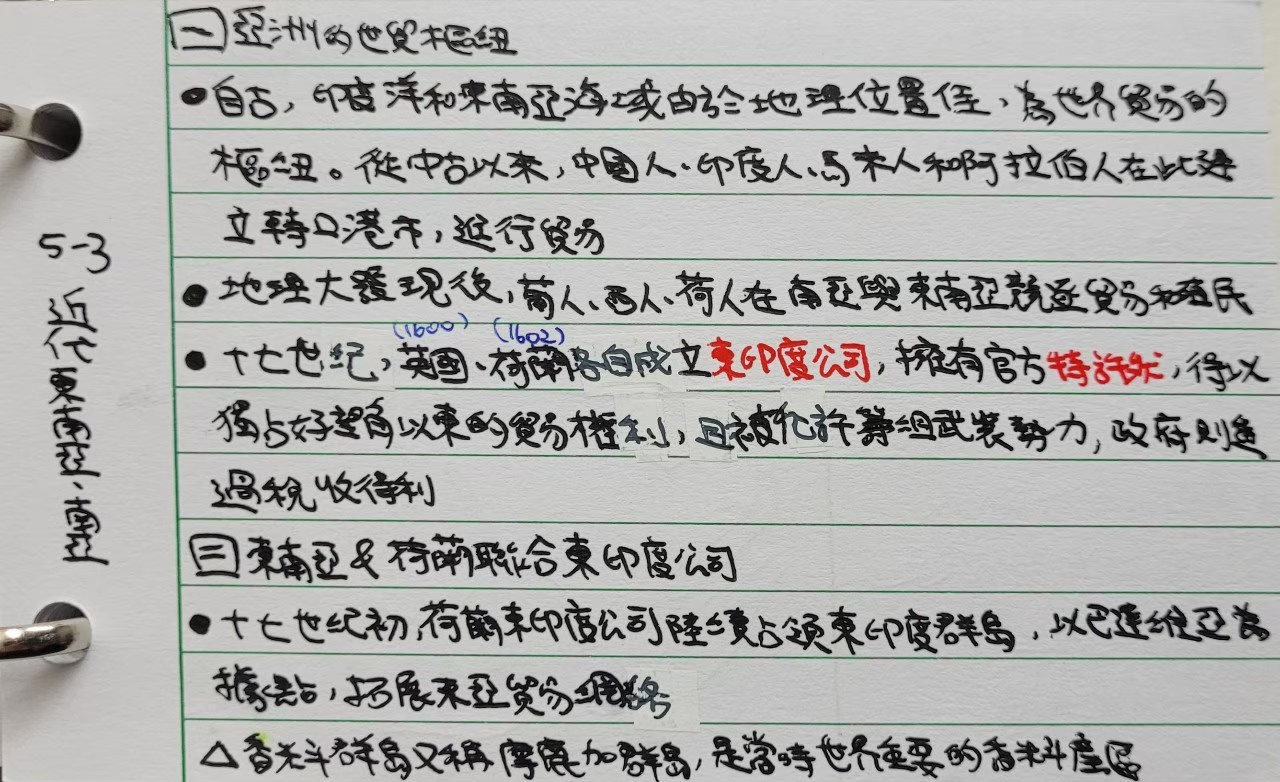 5-3 近代東南亞、南亞
一 亞洲的世貿樞紐
●自古，印度洋和東南亞海域由於地理位置佳，為世界貿易的
樞紐。從中古以來，中國人、印度人、馬來人和阿拉伯人在此建
立轉口港市，進行貿易
●地理大發現後，葡人、西人、荷人在南亞與東南亞競逐貿易和殖民
(1600) (1602)
●十七世紀，英國、荷蘭各自成立東印度公司，擁有官方特許狀，得以
獨占好望角以東的貿易權利，且被允許籌組武裝勢力，政府則透
過稅收得利
二 東南亞&荷蘭聯合東印度公司
●十七世紀初，荷蘭東印度公司陸續占領東印度群島，以巴達維亞為
據點，拓展東亞貿易網路
△香料群島又稱摩鹿加群島，是當時世界重要的香料產區